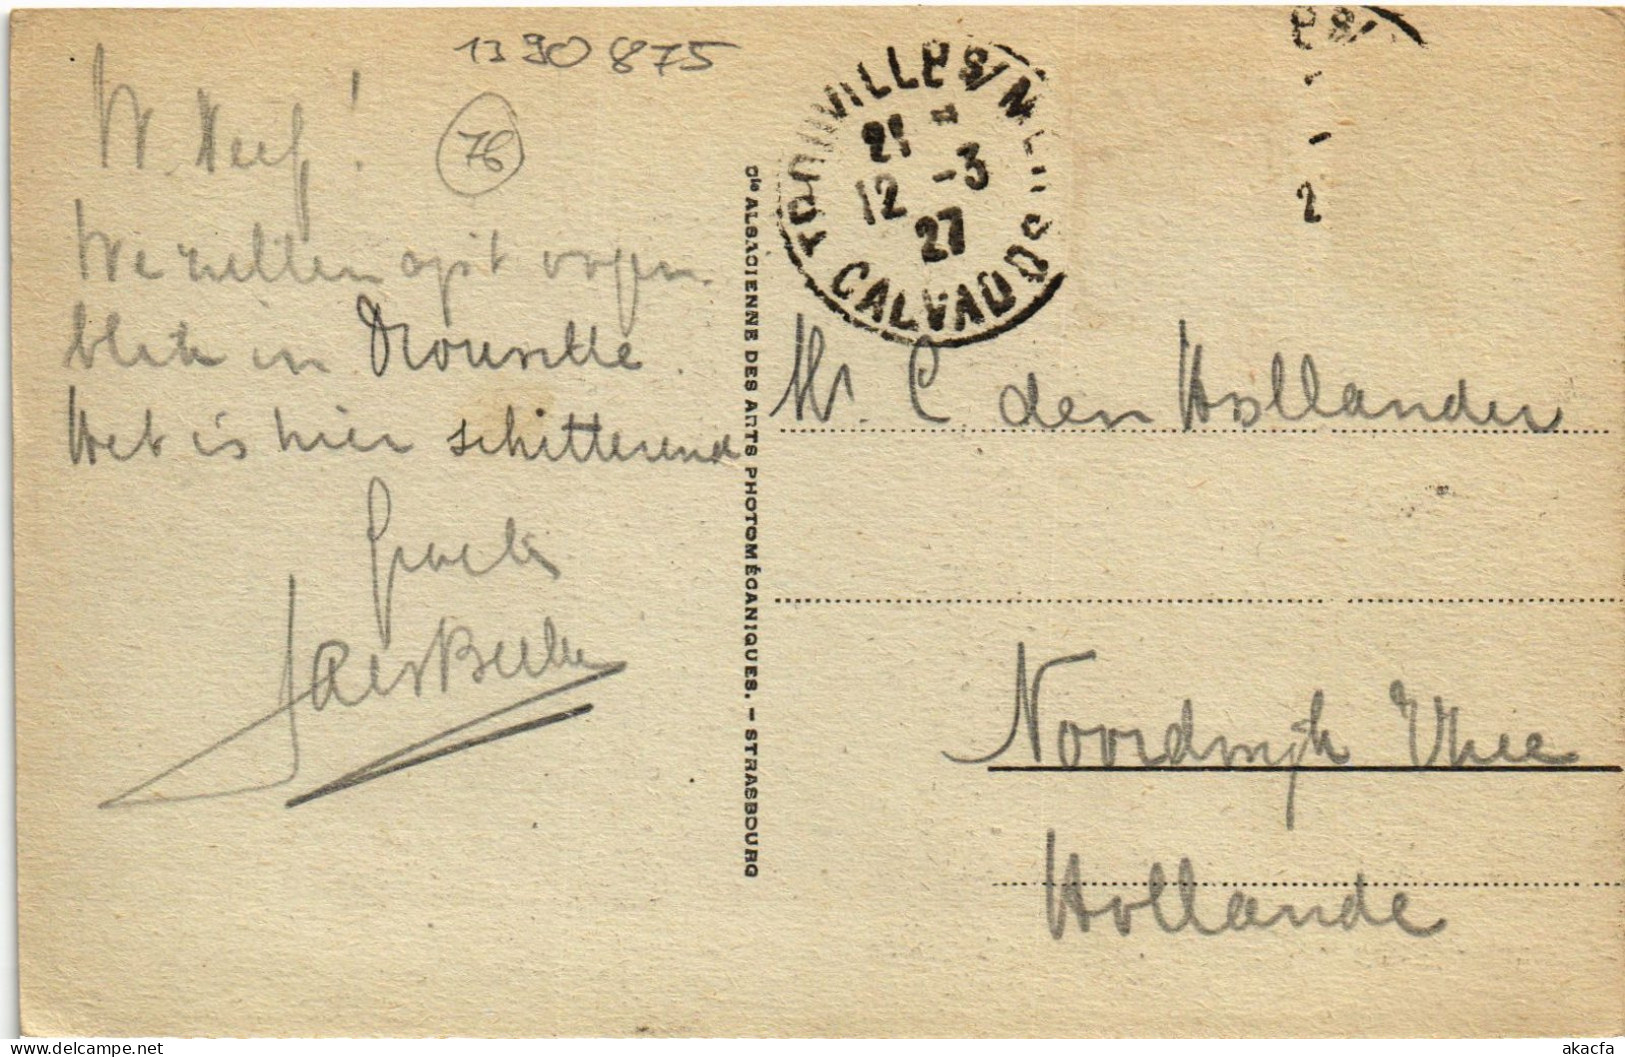 1390875
76
W. Neef!
We zitten op 't oogen
blik in Trouville.
Het is hier schitterend
Groeten
Cie ALSACIENNE DES ARTS PHOTOMÉCANIQUES. - STRASBOURG
TROUVILLE S/MER
21
12 -3
27
CALVADOS
Mr. C den Hollander
Noordwijk Z/Zee
Hollande
akacfa